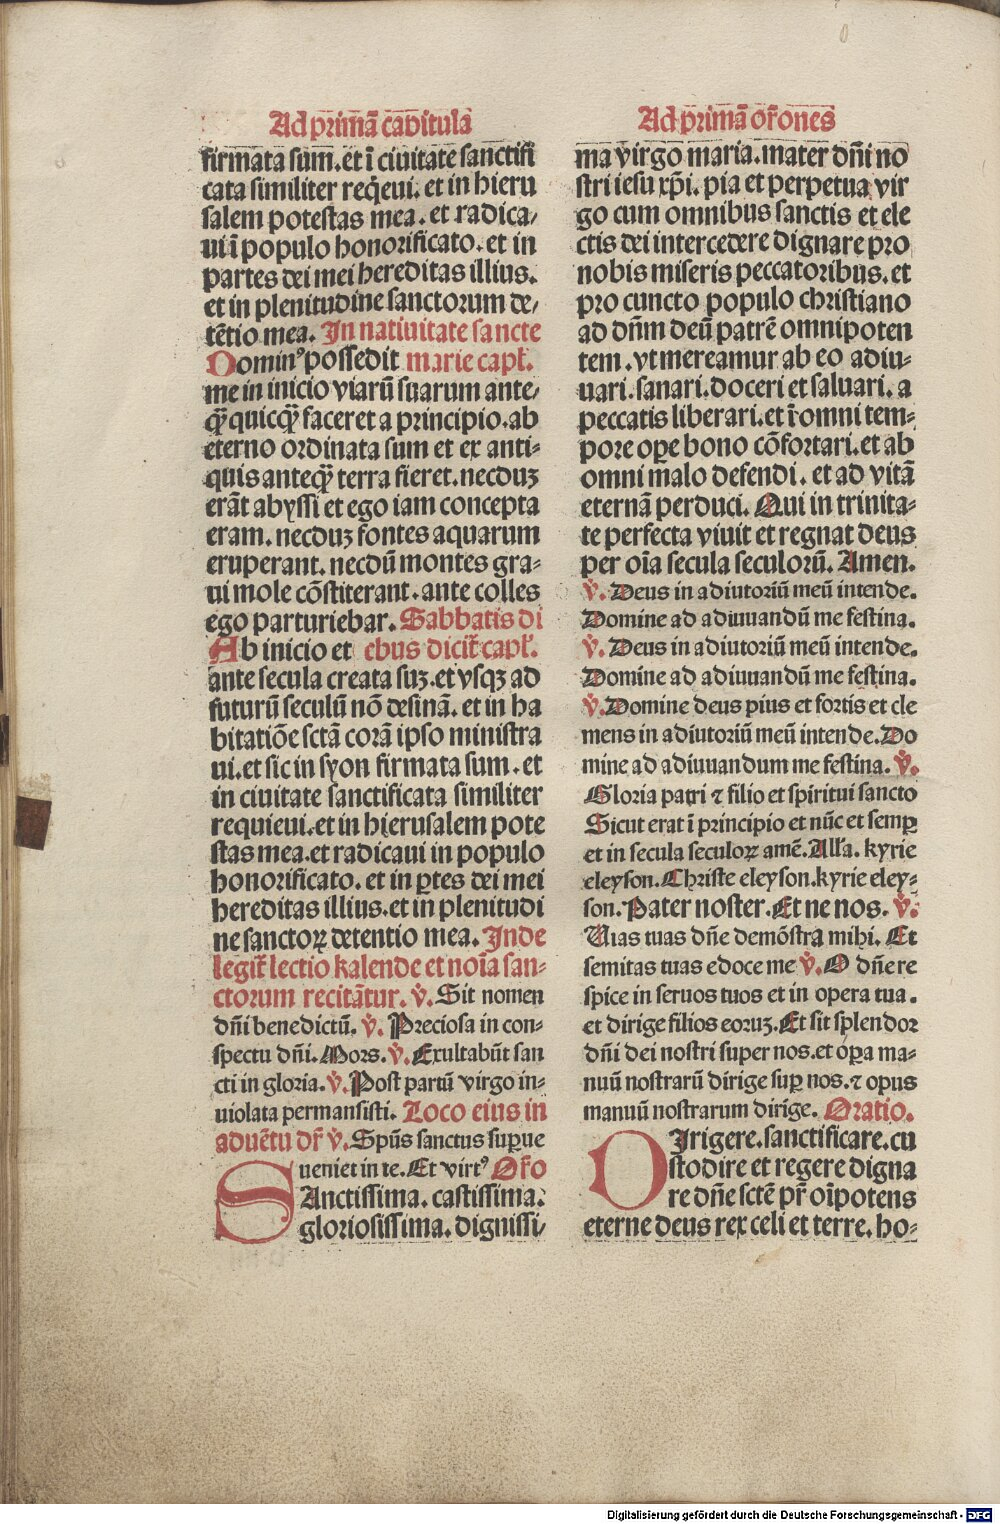 Ad primā capitula
firmata sum. et ī ciuitate sanctifi
cata similiter reqͥeui. et in hieru
salem potestas mea. et radica/
ui ī populo honorificato. et in
partes dei mei hereditas illius.
et in plenitudine sanctorum de/
tētio mea. In natiuitate sancte
Dominꝰ possedit marie capl̄.
me in inicio viarū suarum ante/
qꝫ̄ quicqꝫ̄ faceret a principio. ab
eterno ordinata sum et ex anti-
quis anteqꝫ̄ terra fieret. necduꝫ
erāt abyssi et ego iam concepta
eram. necduꝫ fontes aquarum
eruperant. necdū montes gra-
ui mole cōstiterant. ante colles
ego parturiebar. Sabbatis di
Ab inicio et ebus dicit̄ capl̄.
ante secula creata suꝫ. et vsqꝫ ad
futurū seculū nō desinā. et in ha
bitatiōe sctā corā ipso ministra
ui. et sic in syon firmata sum. et
in ciuitate sanctificata similiter
requieui. et in hierusalem pote
stas mea. et radicaui in populo
honorificato. et in ꝑtes dei mei
hereditas illius. et in plenitudi
ne sanctoꝝ detentio mea. Inde
legit̄ lectio kalende et noīa san-
ctorum recitātur. ℣. Sit nomen
dn̄i benedictū. ℣. Preciosa in con-
spectu dn̄i. Mors. ℣. Exultabūt san
cti in gloria. ℣. Post partū virgo in-
uiolata permansisti. Loco eius in
aduētu dr̄ ℣. Spūs sanctus suꝑue
ueniet in te. Et virtꝰ Or̄o
SAnctissima. castissima.
gloriosissima. dignissi/
Ad primā or̄ones
ma virgo maria. mater dn̄i no
stri iesu xp̄i. pia et perpetua vir
go cum omnibus sanctis et ele
ctis dei intercedere dignare pro
nobis miseris peccatoribus. et
pro cuncto populo christiano
ad dn̄m deū patrē omnipoten
tem. vt mereamur ab eo adiu-
uari. sanari. doceri et saluari. a
peccatis liberari. et ī omni tem-
pore oꝑe bono cōfortari. et ab
omni malo defendi. et ad vitā
eternā perduci. Qui in trinita-
te perfecta viuit et regnat deus
per oīa secula seculorū. Amen.
℣. Deus in adiutoriū meū intende.
Domine ad adiuuandū me festina.
℣. Deus in adiutoriū meū intende.
Domine ad adiuuandū me festina.
℣. Domine deus pius et fortis et cle
mens in adiutoriū meū intende. Do
mine ad adiuuandum me festina. ℣.
Gloria patri ⁊ filio et spiritui sancto
Sicut erat ī principio et nūc et semꝑ
et in secula seculoꝝ amē. All'a. kyrie
eleyson. Christe eleyson. kyrie eley-
son. Pater noster. Et ne nos. ℣.
Uias tuas dn̄e demōstra mihi. Et
semitas tuas edoce me ℣. O dn̄e re
spice in seruos tuos et in opera tua.
et dirige filios eoruꝫ. Et sit splendor
dn̄i dei nostri super nos. et oꝑa ma-
nuū nostrarū dirige suꝑ nos. ⁊ opus
manuū nostrarum dirige. Oratio.
DIrigere. sanctificare. cu
stodire et regere digna
re dn̄e sctē pr̄ oīpotens
eterne deus rex celi et terre. ho-
Digitalisierung gefördert durch die Deutsche Forschungsgemeinschaft - DFG